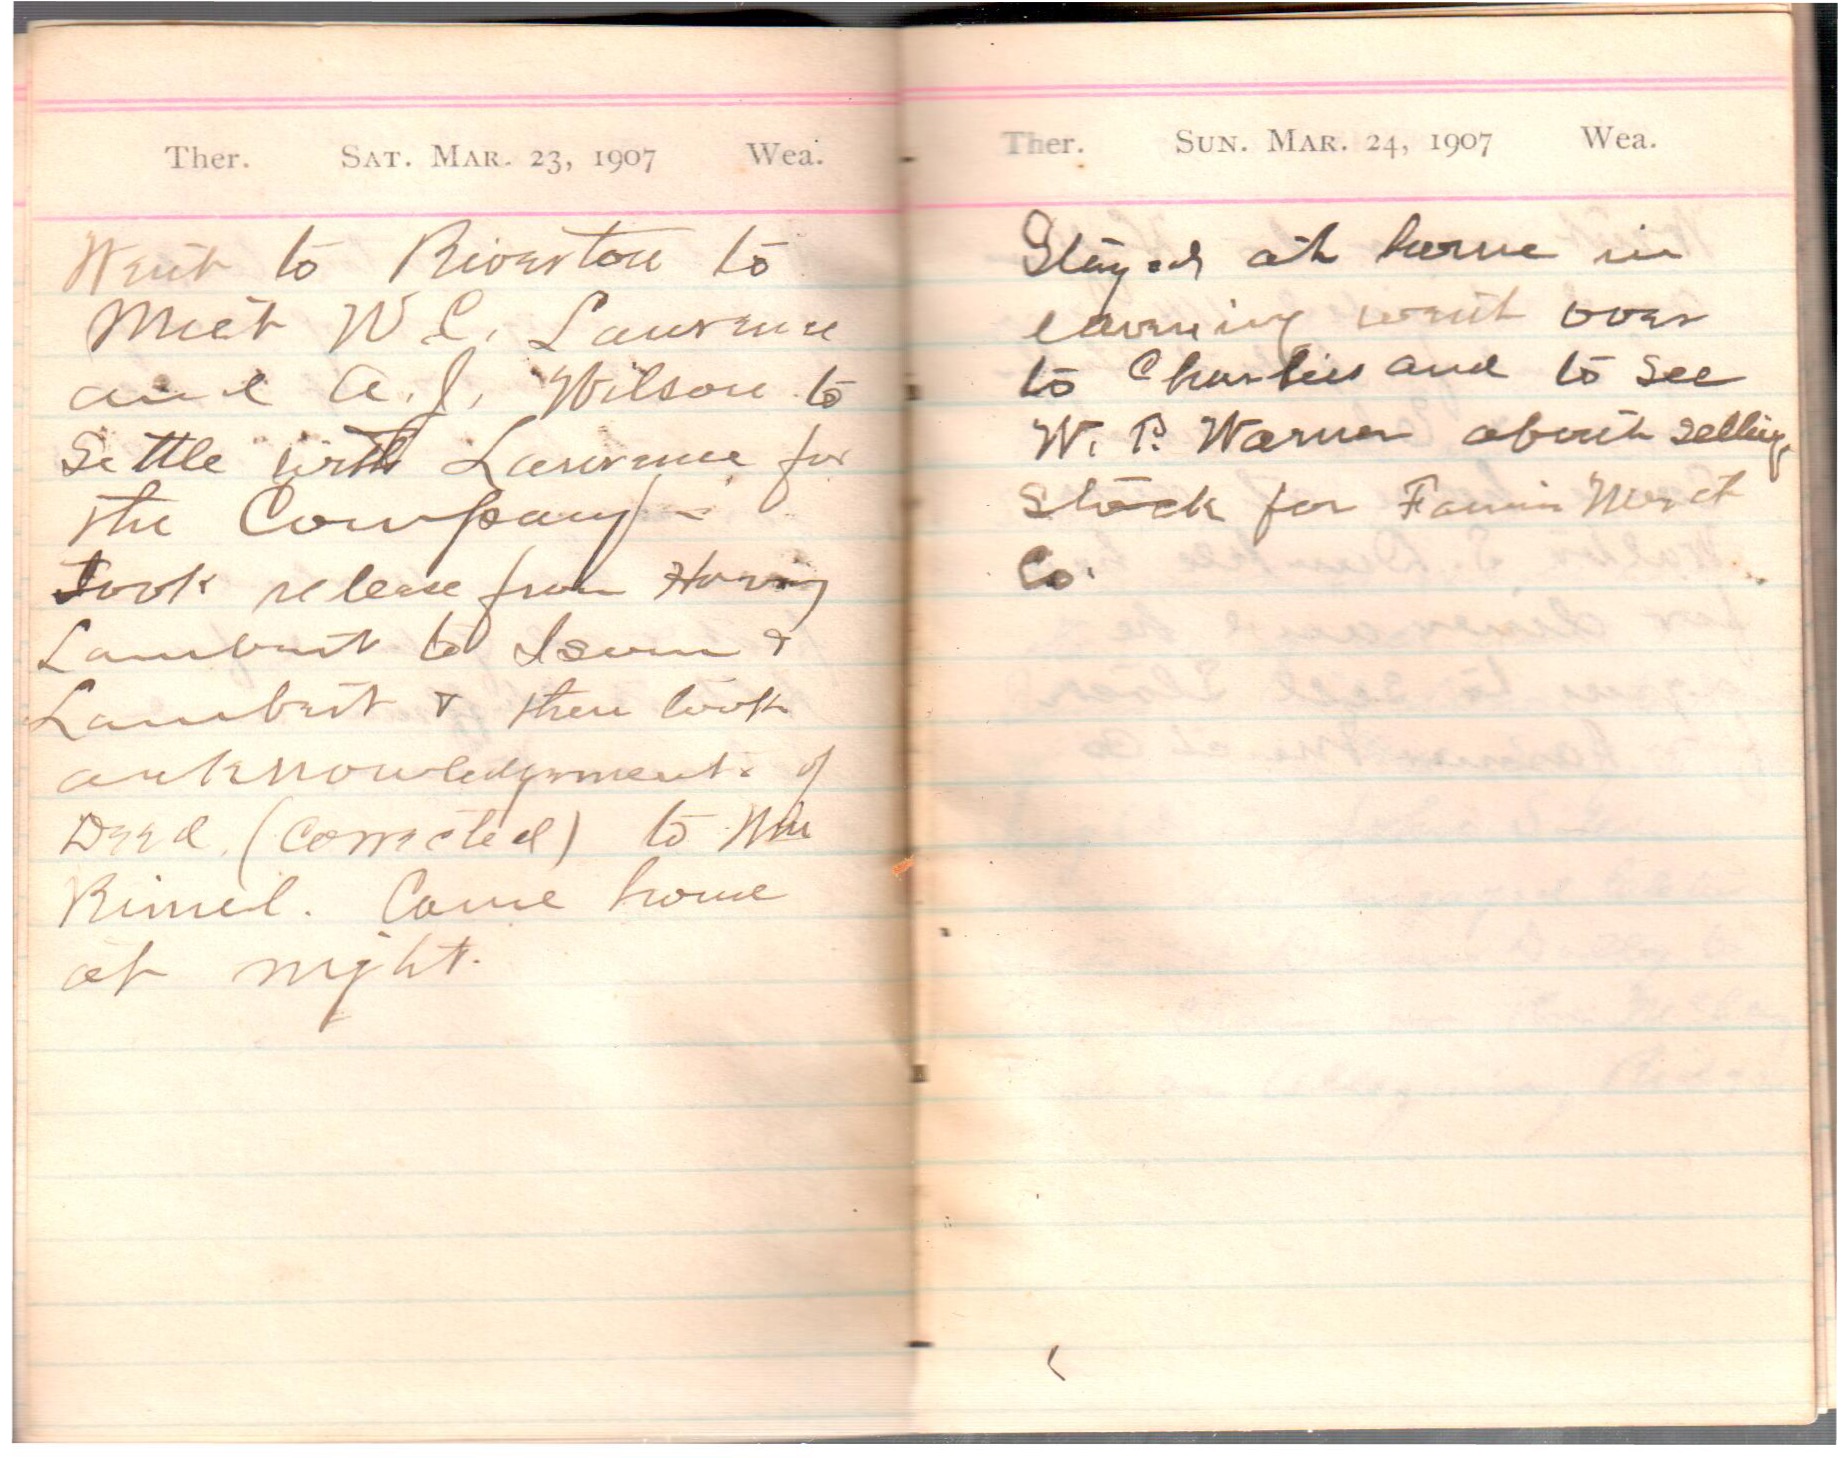 Ther. SAT. MAR. 23, 1907 Wea.
Went to Riverton to
Meet W L. Lawrence
and A. J. Wilson to
Settle with Lawrence for
the Company -
Took release from Harvey
Lambert to &
Lambert & then took
acknowledgement of
Deed (Corrected) to Wm
Rimel. Came home
at night.
Ther. SUN. MAR. 24, 1907 Wea.
Stayed at home in
evening went over
to Charlies and to See
W. P. Warner about selling
Stock for Merct
Co.